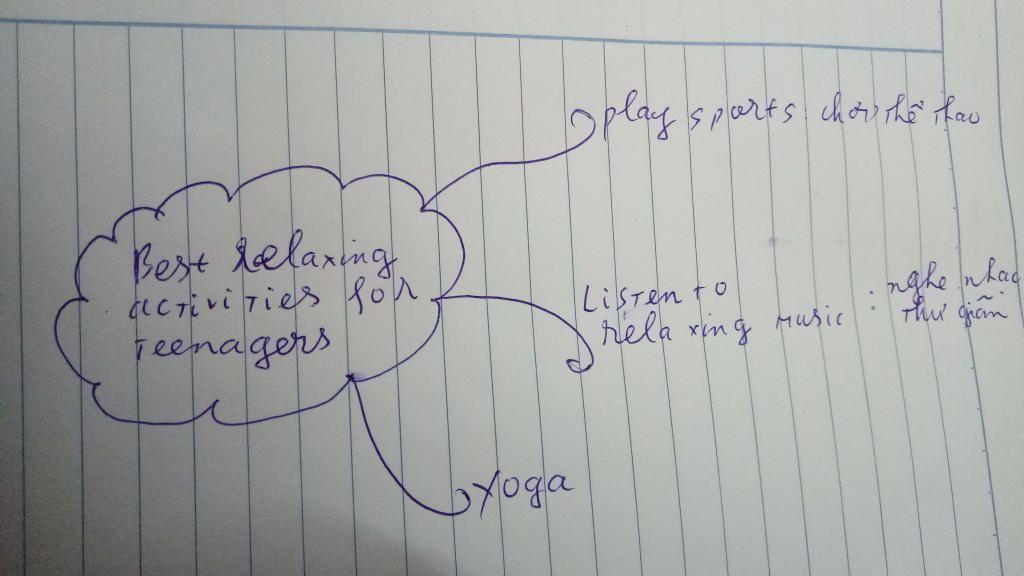 play sports : chơi thể thao
Best relaxing
activities for
teenagers
Listen to
relaxing music : nghe nhạc
thư giãn
Yoga